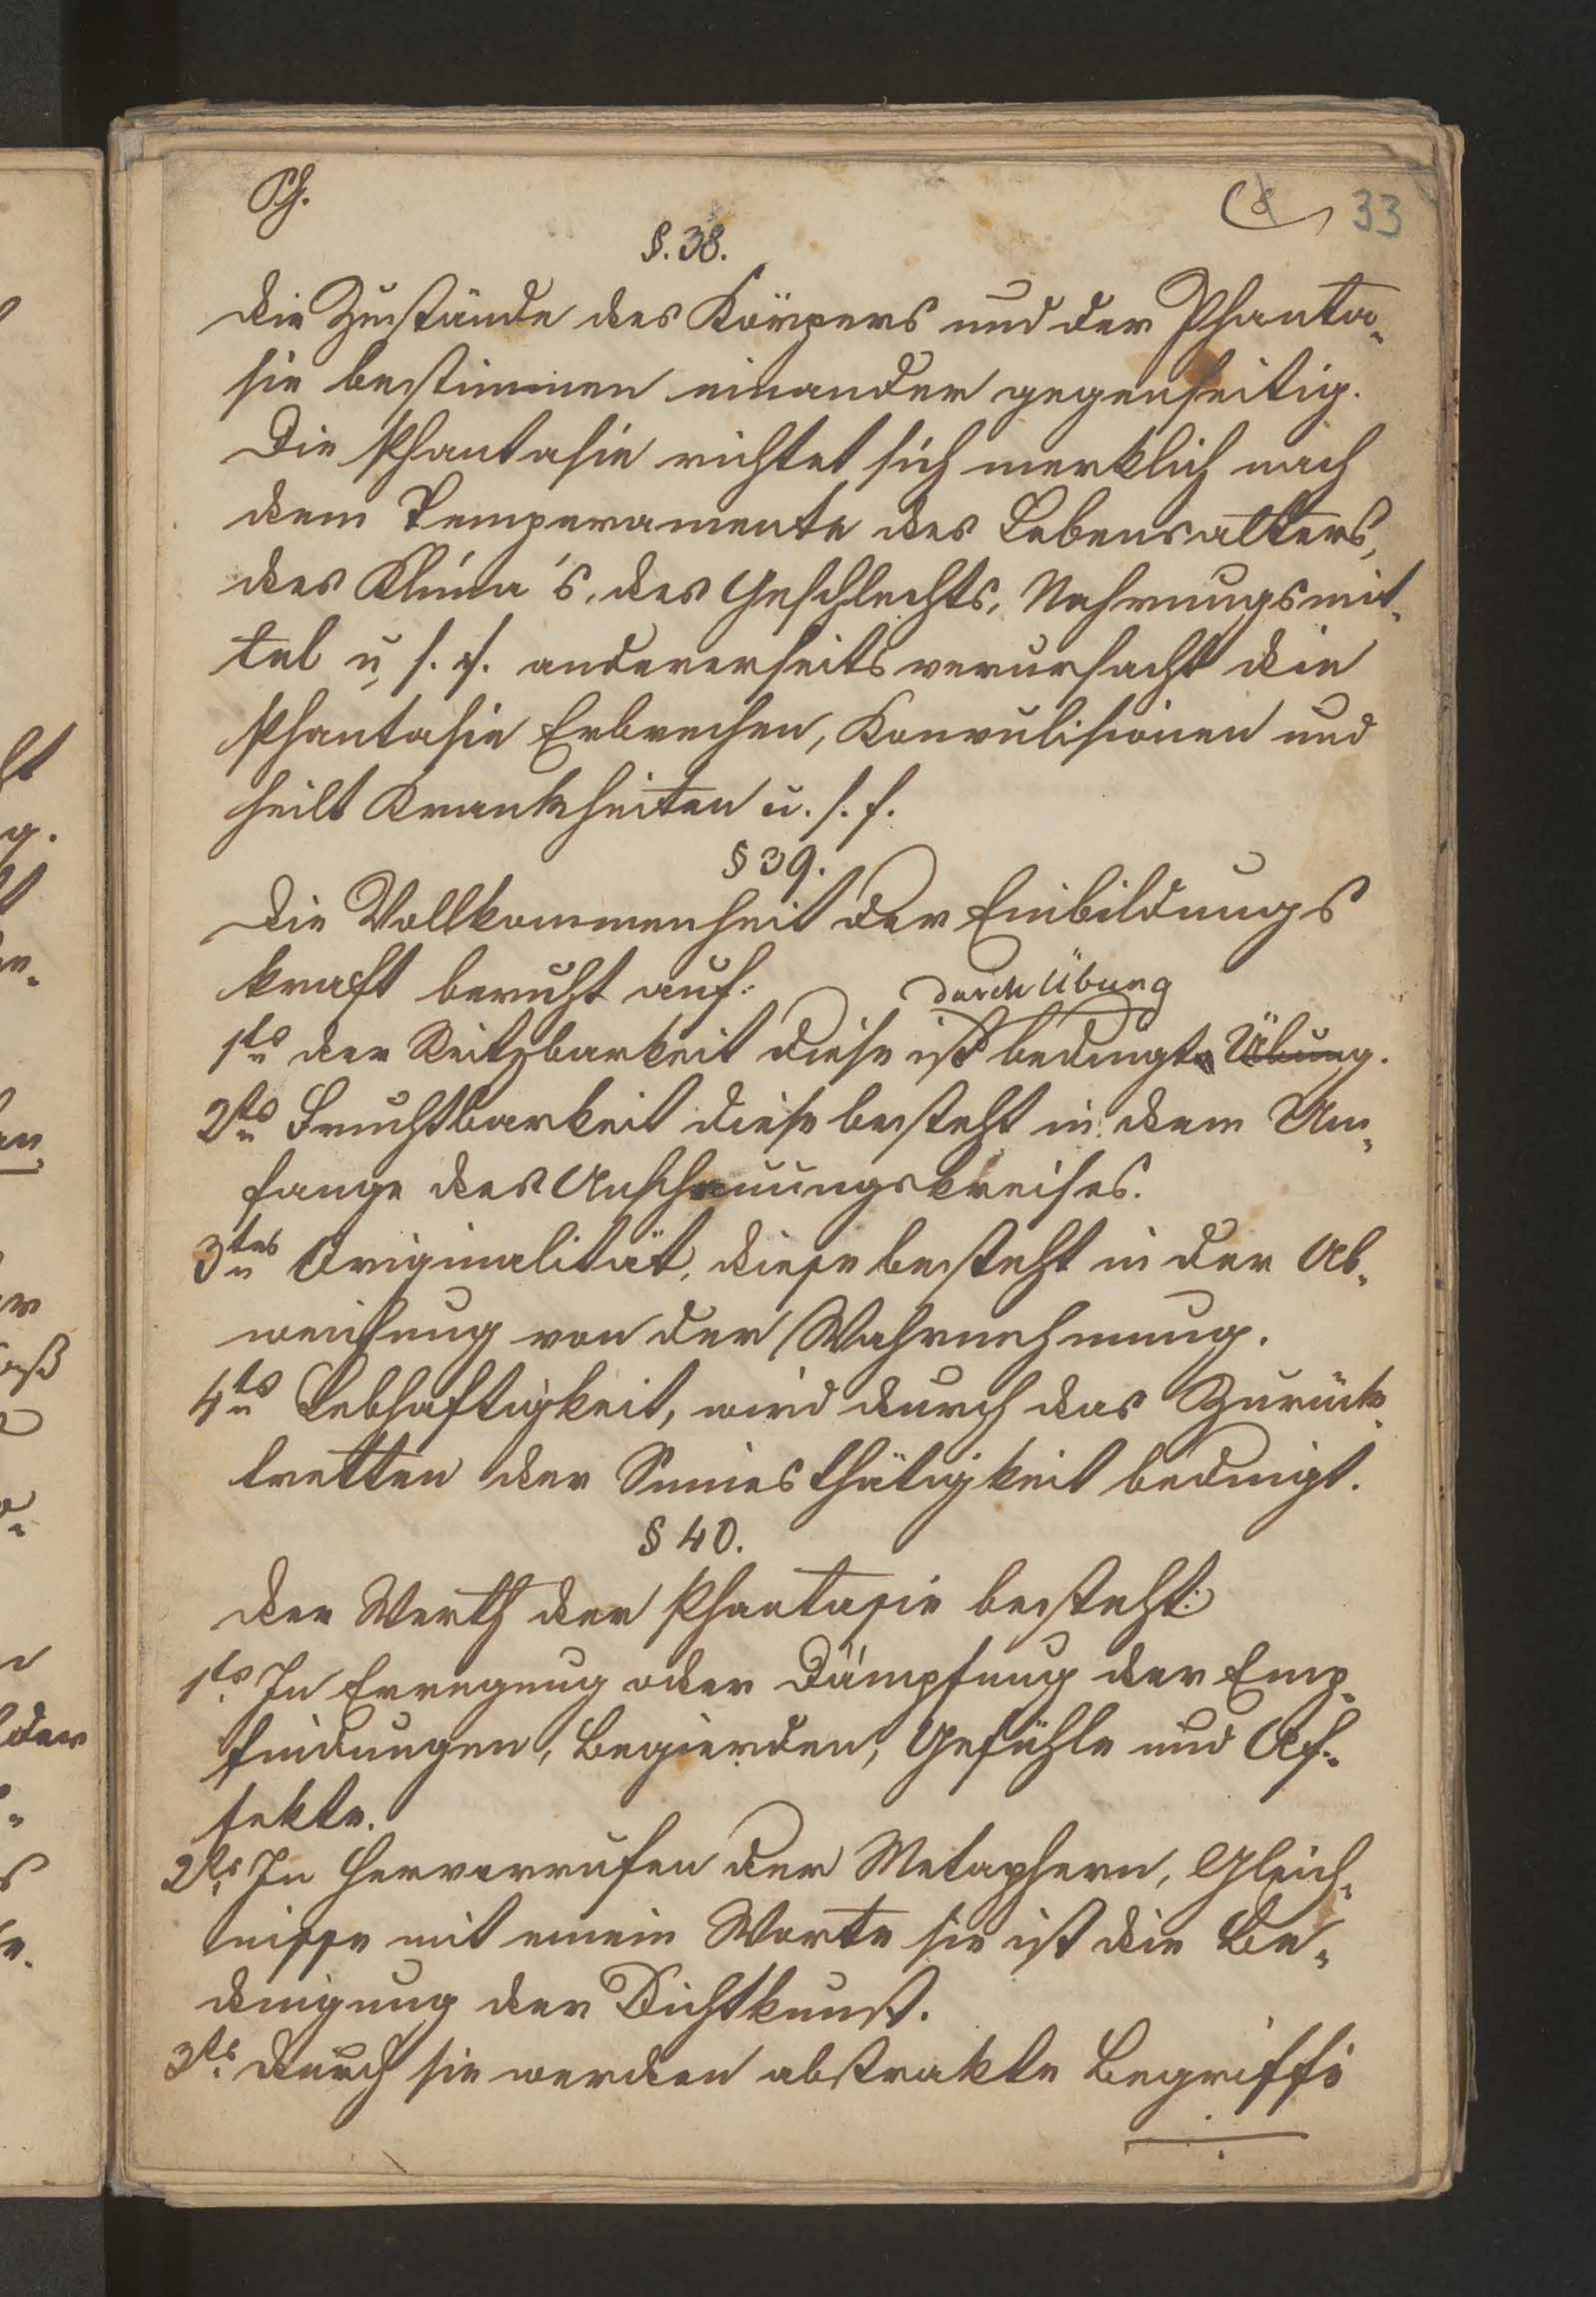 Ph.
(8 33
§. 38.
Die Zustände des Körpers und der Phanta-
sie bestimmen einander gegenseitig.
Die Phantasie richtet sich merklich nach
dem Temperamente des Lebensalters,
des Klima's, des Geschlechts, Nahrungsmit-
tel u. s. f. andererseits verursacht die
Phantasie Erbrechen, Konvulisionen und
heilt Krankheiten u. s. f.
§ 39.
Die Vollkommenheit der Einbildungs
kraft beruht auf:
durch Übung
1tens der Reitzbarkeit diese ist bedingt Übung.
2tens Fruchtbarkeit diese besteht in dem Um-
fange des Anschauungskreises.
3tens Originalität, diese besteht in der Ab-
weichung von der Wahrnehmung.
4tens Lebhaftigkeit, wird durch das Zurück-
tretten der Sinnesthätigkeit bedingt.
§ 40.
Der Werth der Phantasie besteht:
1tens In Erregung oder Dämpfung der Emp-
findungen, Begierden, Gefühle und Af-
fekte.
2tens In Hervorrufen der Metaphern, Gleich-
nisse mit einem Worte sie ist die Be-
dingung der Dichtkunst.
3tens durch sie werden abstrakte Begriffe